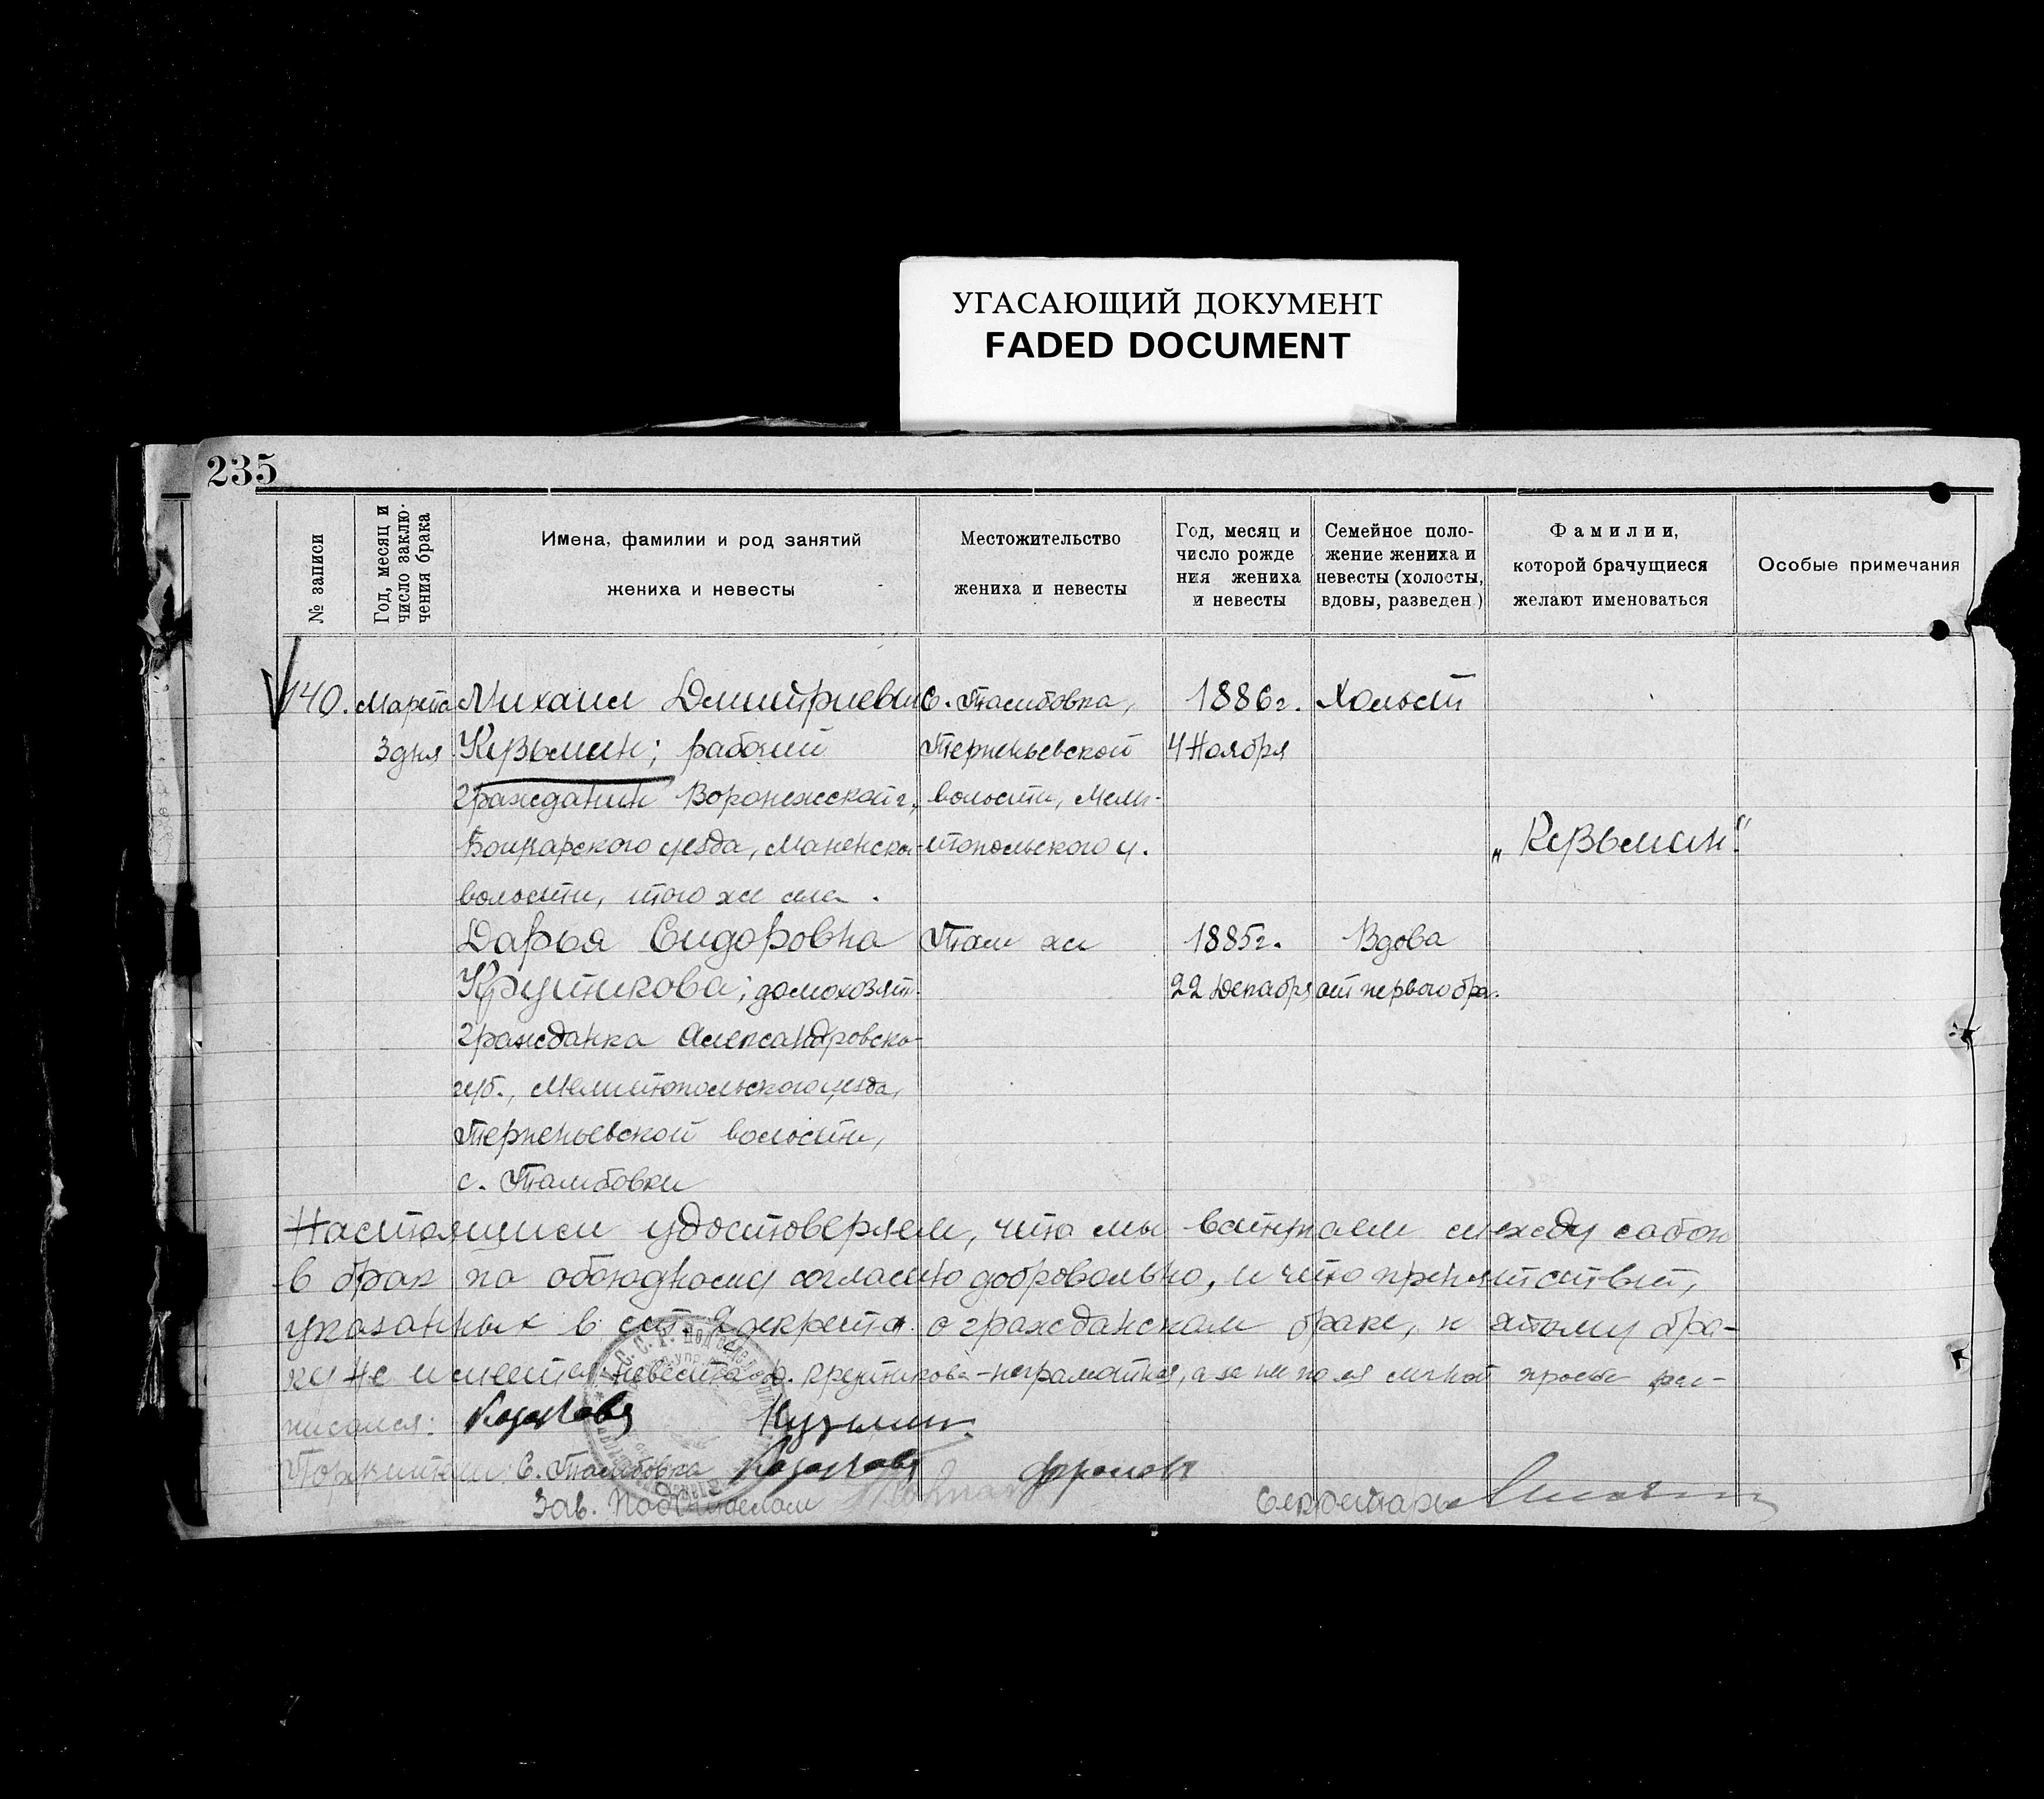 УГАСАЮЩИЙ ДОКУМЕНТ
FADED DOCUMENT
235
№ записи
Год, месяц и число заклю-
чения брака
Имена, фамилии и род занятий
жениха и невесты
Местожительство
жениха и невесты
Год, месяц и
число рожде
ния жениха
и невесты
Семейное поло-
жение жениха и
невесты (холосты,
вдовы, разведен)
Фамилии,
которой брачущиеся
желают именоваться
Особые примечания
140.
Марта
3 дня
Михаил Дмитриевич
Кузьмин; рабочий
гражданин Воронежской г.,
уезда,
волости, того же села.
с. Тамбовка,
Терпеньевской
волости, Мели-
топольского у.
1886 г.
4 Ноября
Холост
„Кузьмин“
Дарья Сидоровна
Крутикова; домохозяй.
гражданка Александровско
губ., Мелитопольского уезда,
Терпеньевской волости,
с. Тамбовки
Там же
1885 г.
22 Декабря
Вдова
от первого бра.
Настоящим удостоверяем, что мы вступаем между собою
в брак по обоюдному согласию добровольно, и что препятствий,
указанных в ст. декрета о гражданском браке, к этому бра-
ку не имеется. невеста Д. Крутикова - неграмотная, а за нее по ея личной просьбе рас-
писался:
Кузьмин
С. Тамбовка
Зав. Подотделом
Секретарь